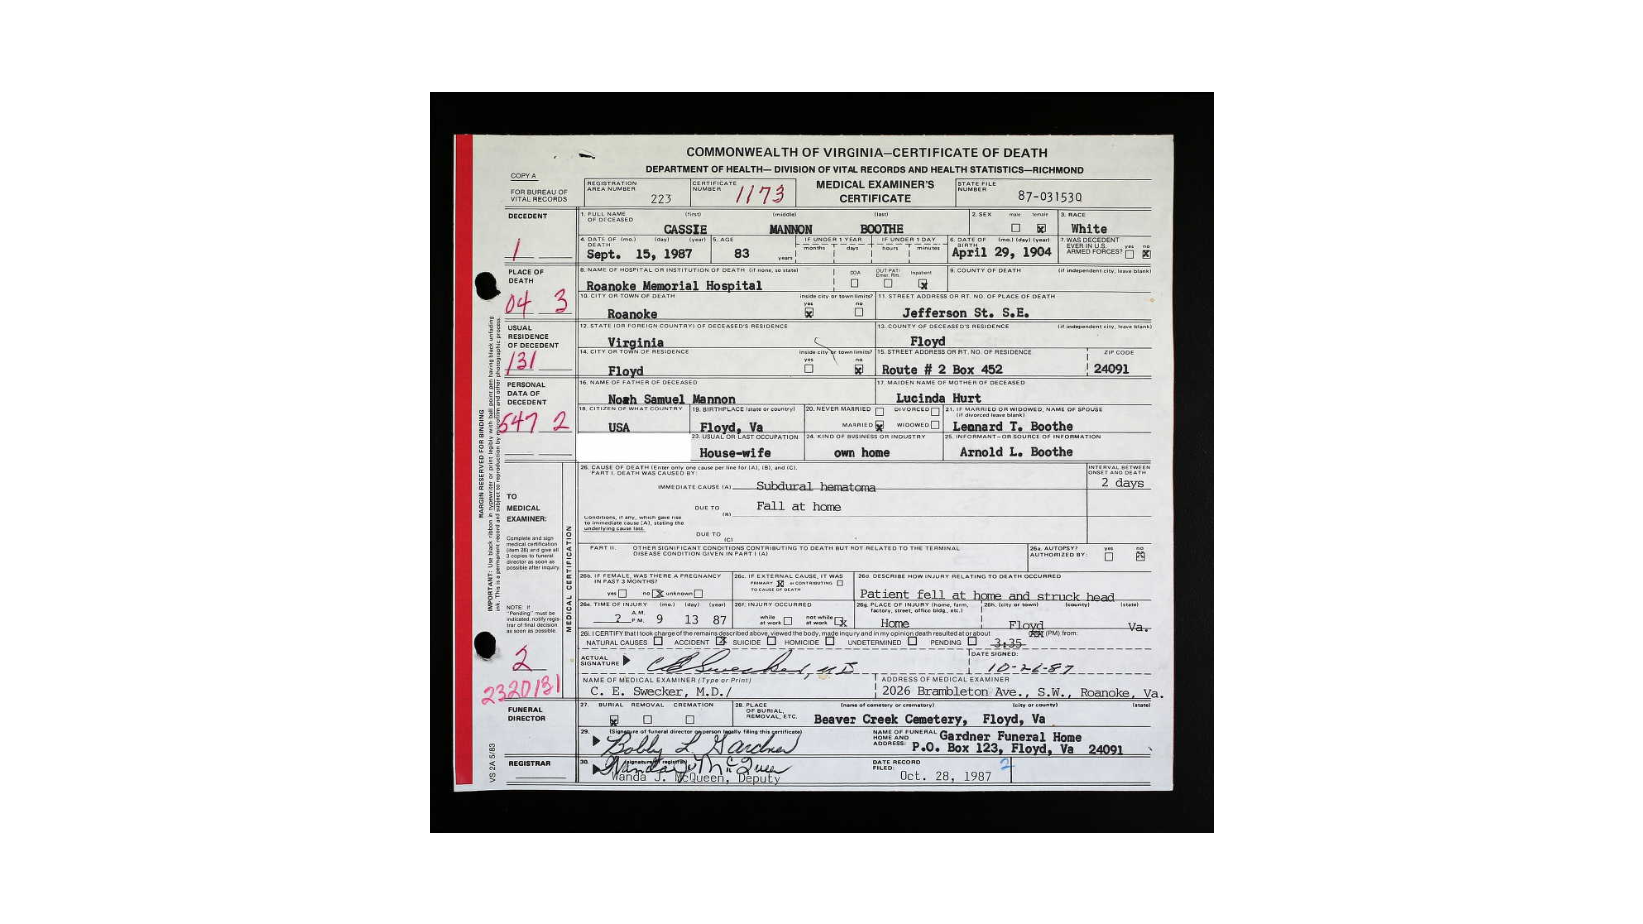 COMMONWEALTH OF VIRGINIA—CERTIFICATE OF DEATH
DEPARTMENT OF HEALTH— DIVISION OF VITAL RECORDS AND HEALTH STATISTICS—RICHMOND
COPY A
FOR BUREAU OF VITAL RECORDS
REGISTRATION AREA NUMBER 223
CERTIFICATE NUMBER 1173
MEDICAL EXAMINER'S CERTIFICATE
STATE FILE NUMBER 87-031530
DECEDENT
1
1. FULL NAME OF DECEASED (first) (middle) (last)
CASSIE MANNON BOOTHE
2. SEX male female x
3. RACE
White
4. DATE OF DEATH (mo.) (day) (year)
Sept. 15, 1987
5. AGE
83 years
IF UNDER 1 YEAR months days
IF UNDER 1 DAY hours minutes
6. DATE OF BIRTH (mo.) (day) (year)
April 29, 1904
7. WAS DECEDENT EVER IN U.S. ARMED FORCES? yes no x
PLACE OF DEATH
04 3
8. NAME OF HOSPITAL OR INSTITUTION OF DEATH (if none, so state)
Roanoke Memorial Hospital
DOA OUT PAT/ Emer. Rm. Inpatient x
9. COUNTY OF DEATH (if independent city, leave blank)
10. CITY OR TOWN OF DEATH
Roanoke
inside city or town limits? yes x no
11. STREET ADDRESS OR RT. NO. OF PLACE OF DEATH
Jefferson St. S.E.
USUAL RESIDENCE OF DECEDENT
131
12. STATE (OR FOREIGN COUNTRY) OF DECEASED'S RESIDENCE
Virginia
13. COUNTY OF DECEASED'S RESIDENCE (if independent city, leave blank)
Floyd
14. CITY OR TOWN OF RESIDENCE
Floyd
inside city or town limits? yes no x
15. STREET ADDRESS OR RT. NO. OF RESIDENCE
Route # 2 Box 452
ZIP CODE
24091
PERSONAL DATA OF DECEDENT
547 2
16. NAME OF FATHER OF DECEASED
Noah Samuel Mannon
17. MAIDEN NAME OF MOTHER OF DECEASED
Lucinda Hurt
18. CITIZEN OF WHAT COUNTRY
USA
19. BIRTHPLACE (state or country)
Floyd, Va
20. NEVER MARRIED DIVORCED
MARRIED x WIDOWED
21. IF MARRIED OR WIDOWED, NAME OF SPOUSE (if divorced leave blank)
Lennard T. Boothe
23. USUAL OR LAST OCCUPATION
House-wife
24. KIND OF BUSINESS OR INDUSTRY
own home
25. INFORMANT—OR SOURCE OF INFORMATION
Arnold L. Boothe
MARGIN RESERVED FOR BINDING
TO MEDICAL EXAMINER:
Complete and sign medical certification (item 26) and give all 3 copies to funeral director as soon as possible after inquiry.
NOTE: If "Pending" must be indicated, notify registrar of final decision as soon as possible.
MEDICAL CERTIFICATION
2
2320131
26. CAUSE OF DEATH (Enter only one cause per line for (A), (B), and (C).
PART I. DEATH WAS CAUSED BY:
INTERVAL BETWEEN ONSET AND DEATH
IMMEDIATE CAUSE (A) Subdural hematoma
2 days
DUE TO (B) Fall at home
Conditions, if any, which gave rise to immediate cause (A), stating the underlying cause last.
DUE TO (C)
PART II. OTHER SIGNIFICANT CONDITIONS CONTRIBUTING TO DEATH BUT NOT RELATED TO THE TERMINAL DISEASE CONDITION GIVEN IN PART I (A)
26a. AUTOPSY? AUTHORIZED BY: yes no
26b. IF FEMALE, WAS THERE A PREGNANCY IN PAST 3 MONTHS?
yes no x unknown
26c. IF EXTERNAL CAUSE, IT WAS
PRIMARY x or CONTRIBUTING
TO CAUSE OF DEATH
26d. DESCRIBE HOW INJURY RELATING TO DEATH OCCURRED
Patient fell at home and struck head
26e. TIME OF INJURY (mo.) (day) (year)
? A.M. P.M. 9 13 87
26f. INJURY OCCURRED
while at work not while at work x
26g. PLACE OF INJURY (home, farm, factory, street, office bldg., etc.)
Home
26h. (city or town) (county) (state)
Floyd Va.
26i. I CERTIFY that I took charge of the remains described above, viewed the body, made inquiry and in my opinion death resulted at or about 3:35 (PM) from:
NATURAL CAUSES ACCIDENT x SUICIDE HOMICIDE UNDETERMINED PENDING
ACTUAL SIGNATURE C E Swecker, M.D.
DATE SIGNED:
10-26-87
NAME OF MEDICAL EXAMINER (Type or Print)
C. E. Swecker, M.D./
ADDRESS OF MEDICAL EXAMINER
2026 Brambleton Ave., S.W., Roanoke, Va.
FUNERAL DIRECTOR
27. BURIAL x REMOVAL CREMATION
28. PLACE OF BURIAL, REMOVAL, ETC. (name of cemetery or crematory) (city or county) (state)
Beaver Creek Cemetery, Floyd, Va
29. (Signature of funeral director or person legally filing this certificate)
Bobby L Gardner
NAME OF FUNERAL HOME AND ADDRESS:
Gardner Funeral Home
P.O. Box 123, Floyd, Va 24091
REGISTRAR
30. (signature of registrar)
Wanda J. McQueen
Wanda J. McQueen, Deputy
DATE RECORD FILED:
Oct. 28, 1987
2
VS 2A 5/83